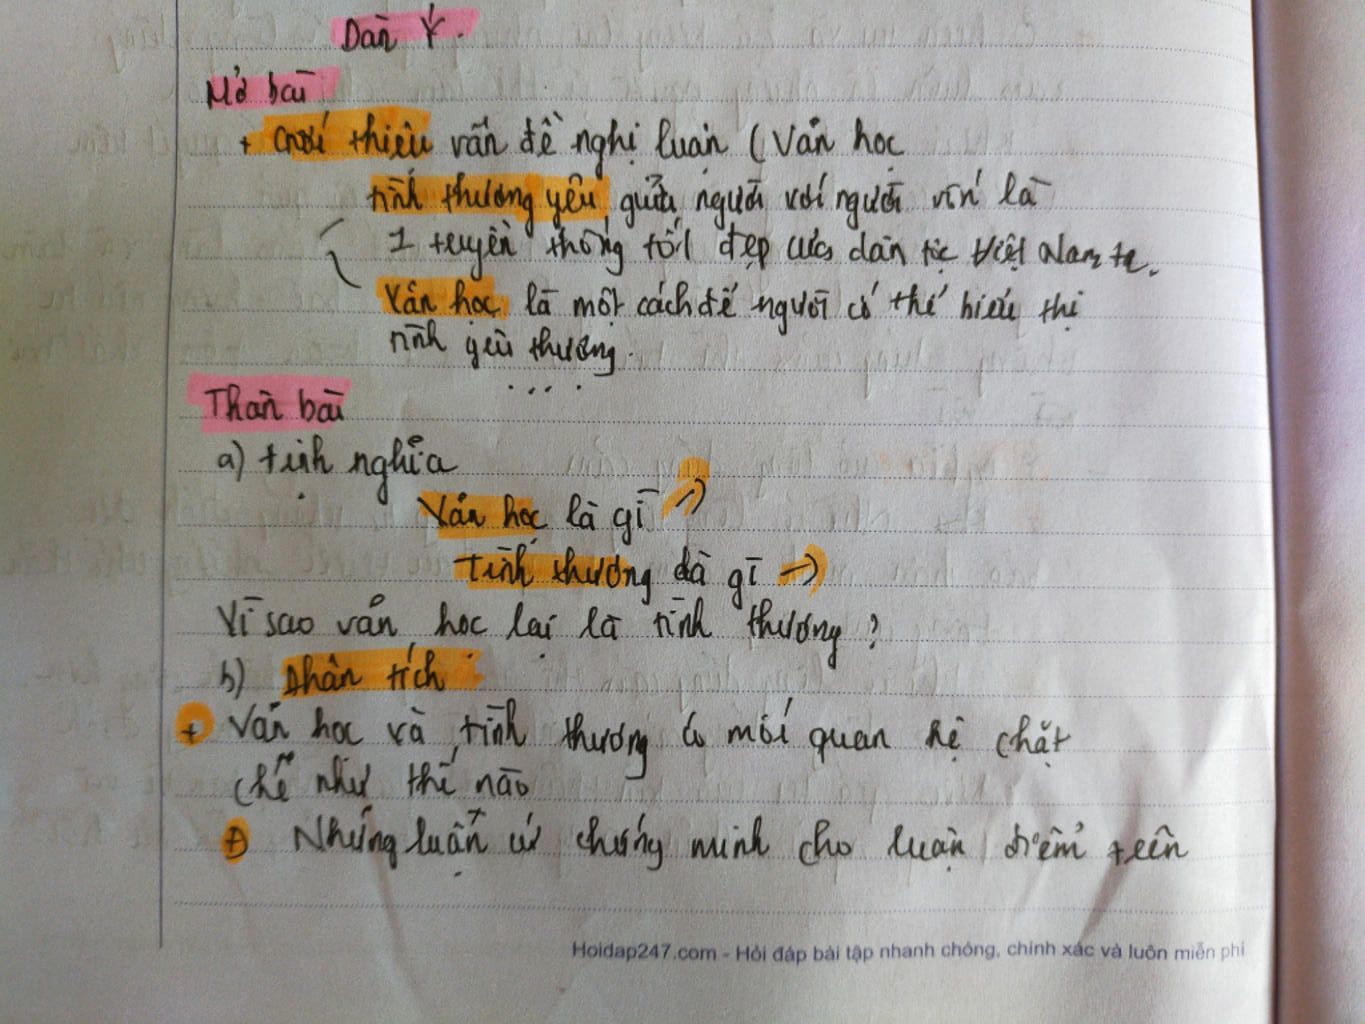 Dàn Ý.
Mở bài
+ Giới thiệu vấn đề nghị luận ( Văn học
tình thương yêu giữa người với người vốn là
1 truyền thống tốt đẹp của dân tộc Việt Nam ta.
Văn học là một cách để người có thể biểu thị
tình yêu thương.
....
Thân bài
a) định nghĩa
Văn học là gì →
tình thương là gì →
Vì sao văn học lại là tình thương ?
b) phân tích
+ Văn học và tình thương có mối quan hệ chặt
chẽ như thế nào
+ Những luận cứ chứng minh cho luận điểm trên
Hoidap247.com - Hỏi đáp bài tập nhanh chóng, chính xác và luôn miễn phí